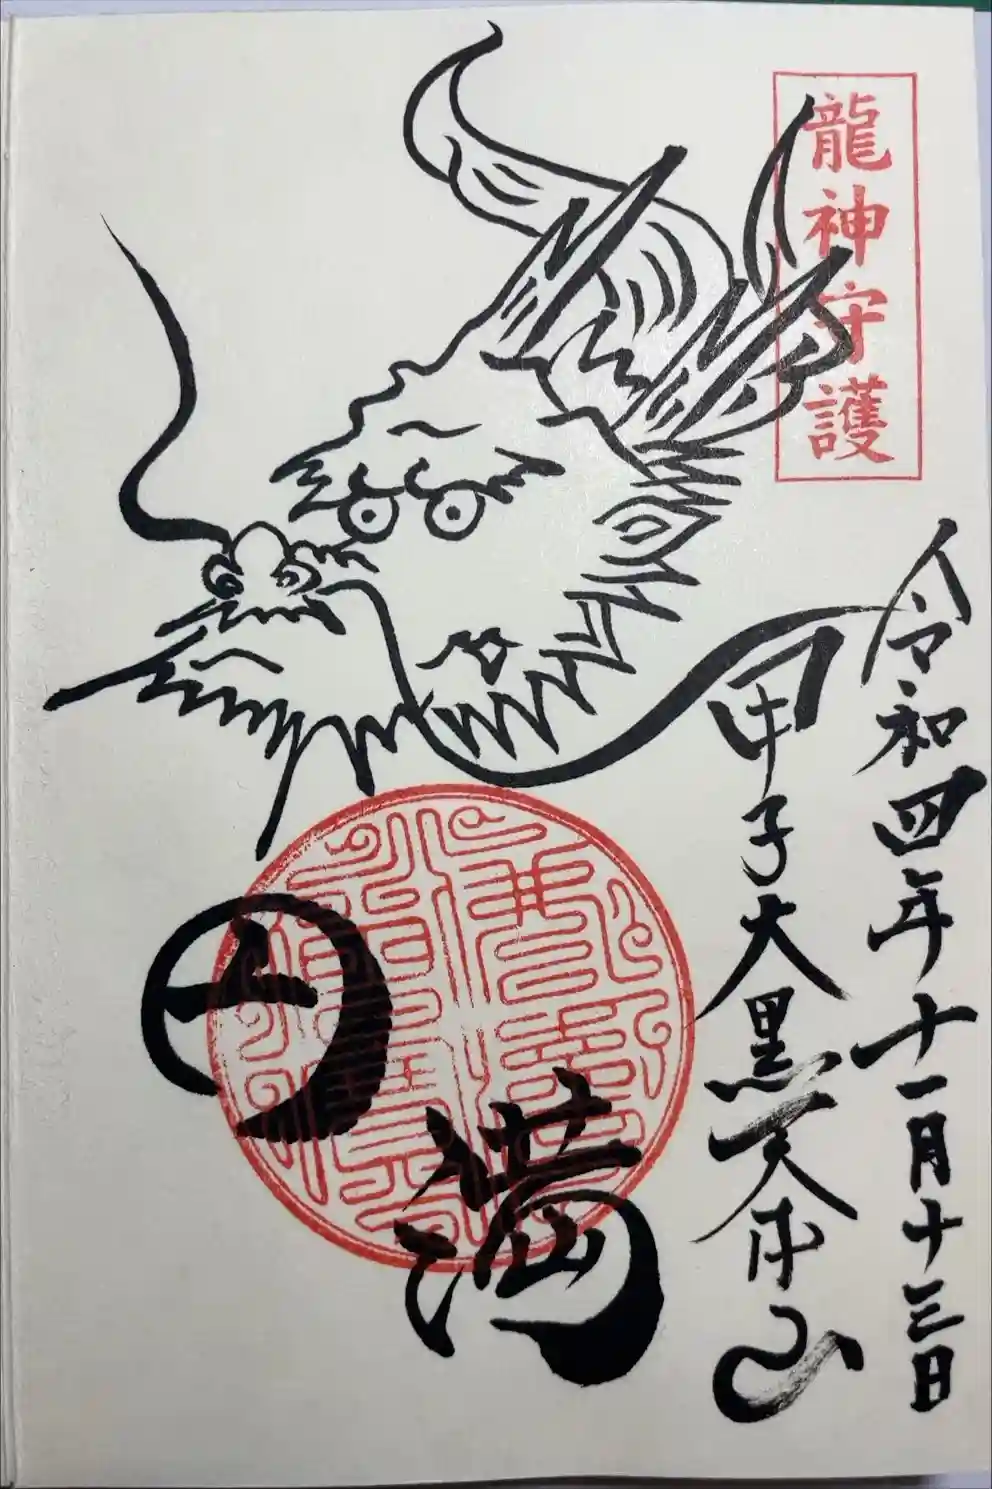 龍神守護
令和四年十一月十三日
甲子大黒天本山
円満